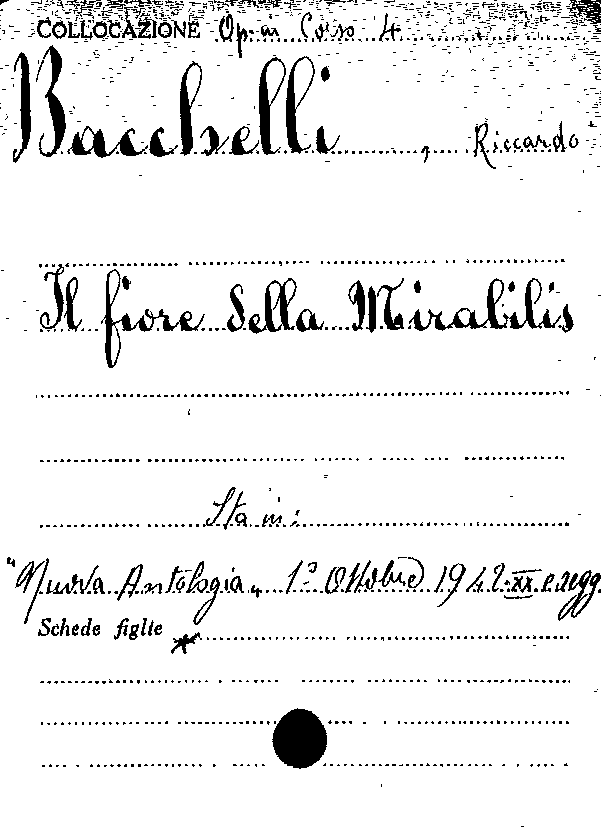 COLLOCAZIONE Op. in Corso 4
Bacchelli, Riccardo
Il fiore della Mirabilis
Sta in:
"Nuova Antologia„ 1º Ottobre 1942·XX e segg.
Schede figlie